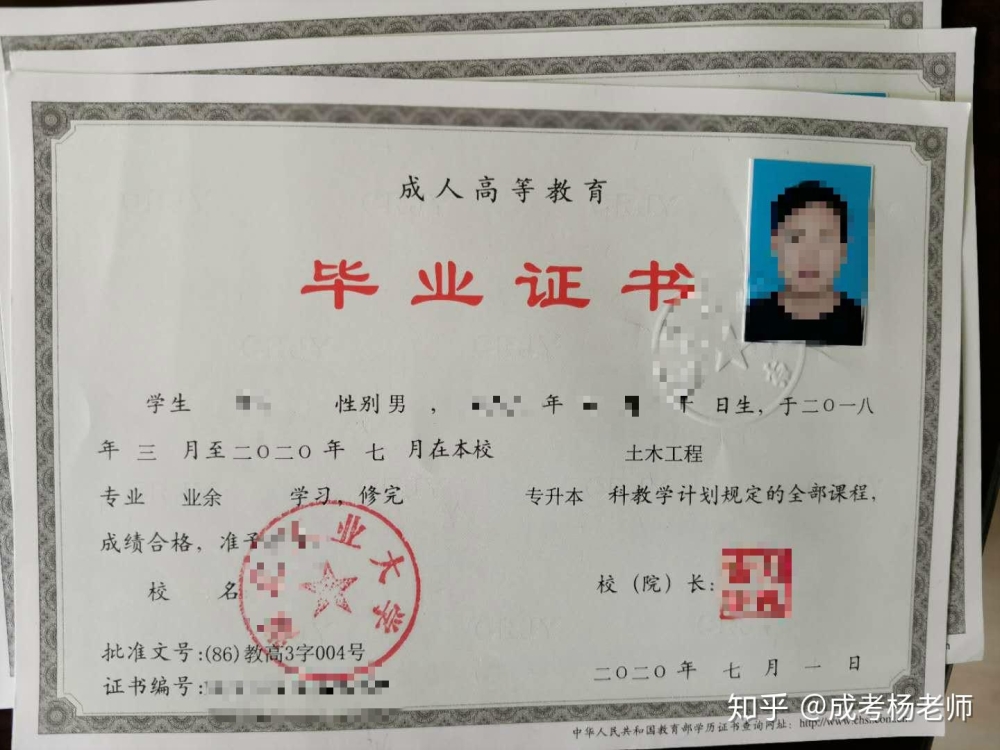 成人高等教育
毕业证书
学生 性别男，年 日生，于二〇一八
年三月至二〇二〇年七月在本校 土木工程
专业 业余 学习，修完 专升本 科教学计划规定的全部课程，
成绩合格，准予
校 名
业大学
校（院）长：
批准文号:(86)教高3字004号
证书编号:
二〇二〇年七月一日
知乎 @成考杨老师
中华人民共和国教育部学历证书查询网址：http://www.chsi.com.cn